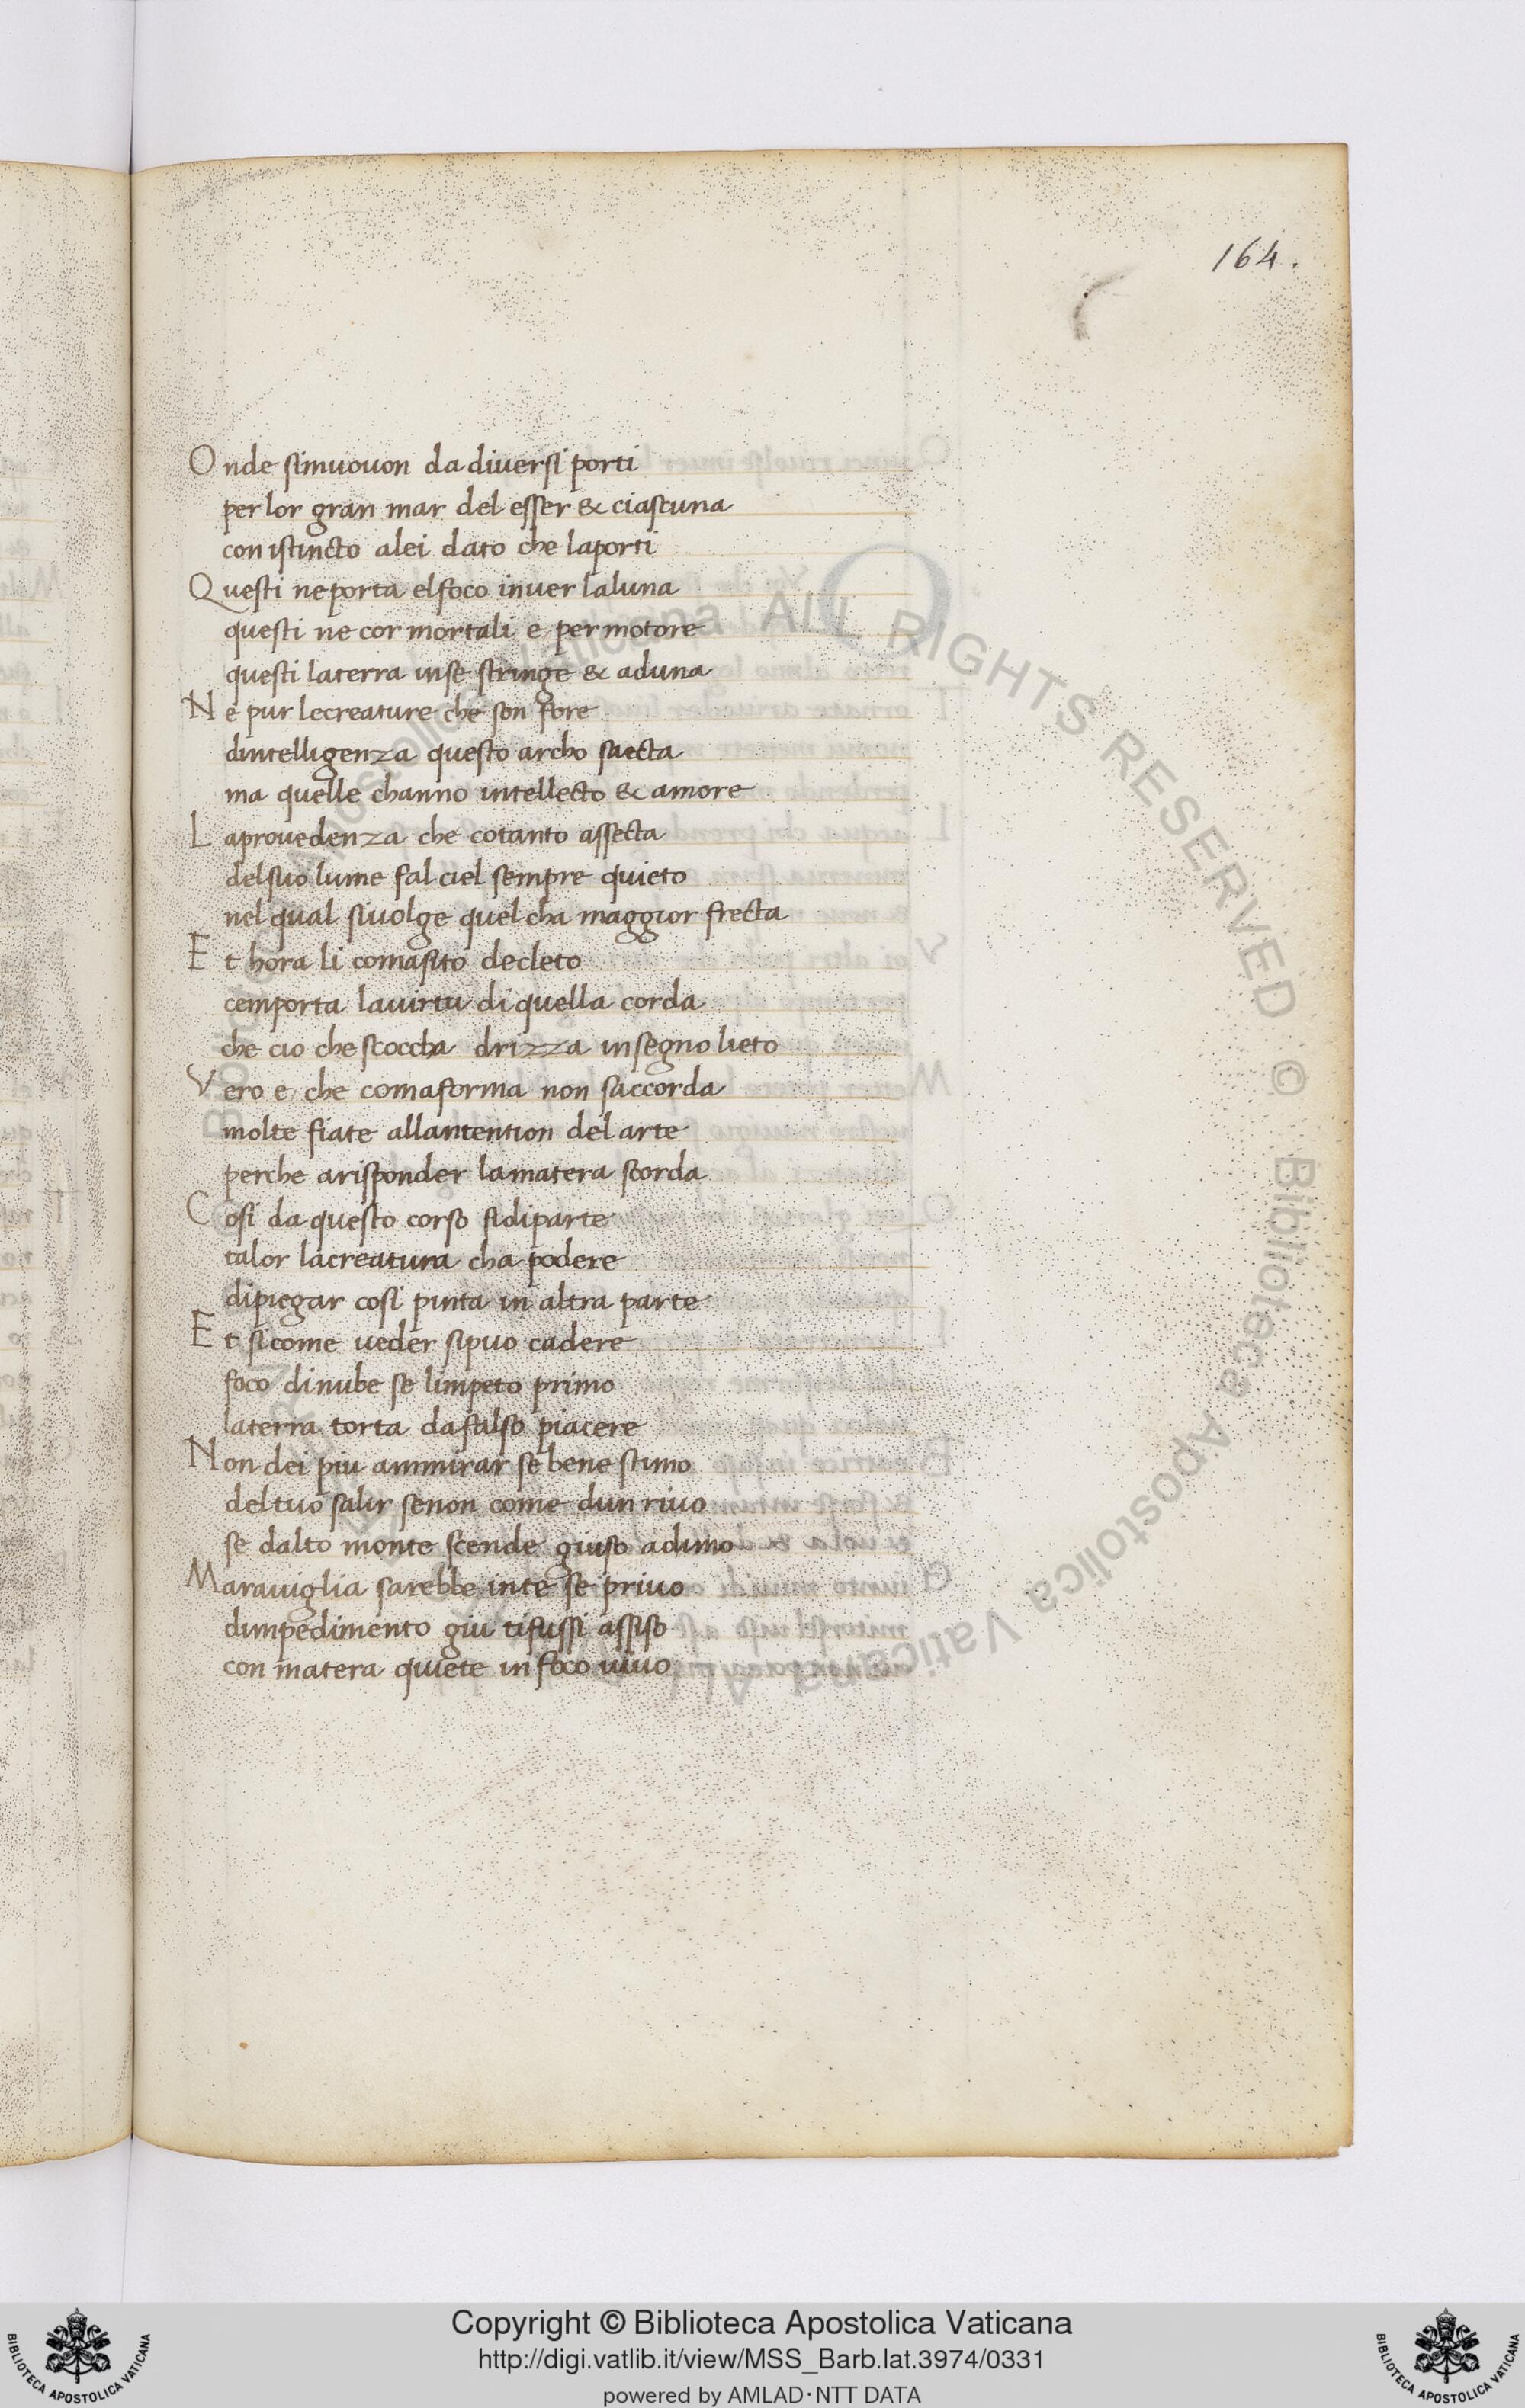 164.
Onde simuovon da diversi porti
per lor gran mar del esser & ciascuna
con istincto alei dato che laporti
Questi neporta elfoco inver laluna
questi ne cor mortali e permotore
questi laterra inse stringe & aduna
Ne pur lecreature che son fore
dintelligenza questo archo saecta
ma quelle channo intellecto & amore
Laprovedenza che cotanto assecta
delsuo lume fal ciel sempre quieto
nel qual sivolge quel cha maggior frecta
Et hora li comasito decleto
cemporta lavirtu di quella corda
che cio che scoccha drizza insegno lieto
Vero e che comaforma non saccorda
molte fiate allantention del arte
perche arisponder lamatera sorda
Cosi da questo corso sidiparte
talor lacreatura cha podere
dipiegar cosi pinta in altra parte
Et sicome veder sipuo cadere
foco dinube se limpeto primo
laterra torta dafalso piacere
Non dei piu ammirar se bene stimo
deltuo salir senon come dun rivo
se dalto monte scende giuso adimo
Maraviglia sarebbe inte se privo
dimpedimento giu tifussi assiso
con matera quiete in foco vivo
Biblioteca Apostolica Vaticana ALL RIGHTS RESERVED © Biblioteca Apostolica Vaticana ALL
Copyright © Biblioteca Apostolica Vaticana
http://digi.vatlib.it/view/MSS_Barb.lat.3974/0331
powered by AMLAD·NTT DATA
BIBLIOTECA APOSTOLICA VATICANA
BIBLIOTECA APOSTOLICA VATICANA